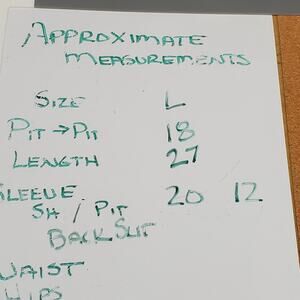 APPROXIMATE
MEASUREMENTS
SIZE L
PIT → PIT 18
LENGTH 27
SLEEVE 20 12
SH / PIT
BACK SLIT
WAIST
HIPS